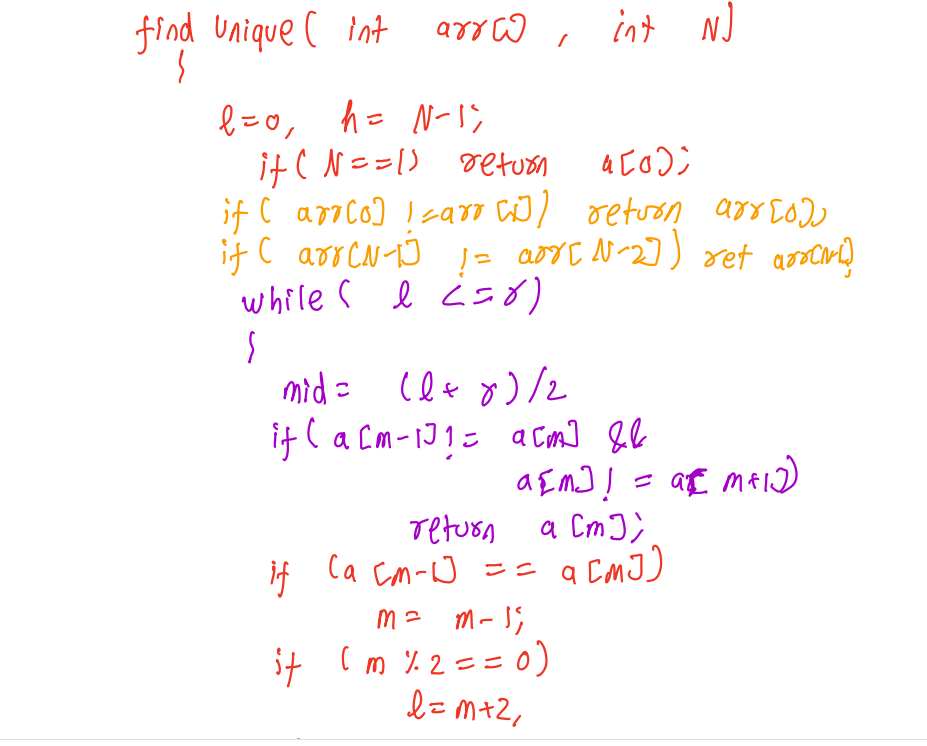 find Unique ( int arr[] , int N)
{
l=0, h= N-1;
if ( N==1) return a[0];
if ( arr[0] != arr[1]) return arr[0];
if ( arr[N-1] != arr[N-2]) ret arr[N-1];
while ( l <= r)
{
mid = (l+r)/2
if ( a[m-1] != a[m] &&
a[m] != a[m+1])
return a[m];
if (a[m-1] == a[m])
m = m-1;
if (m % 2 == 0)
l = m+2,